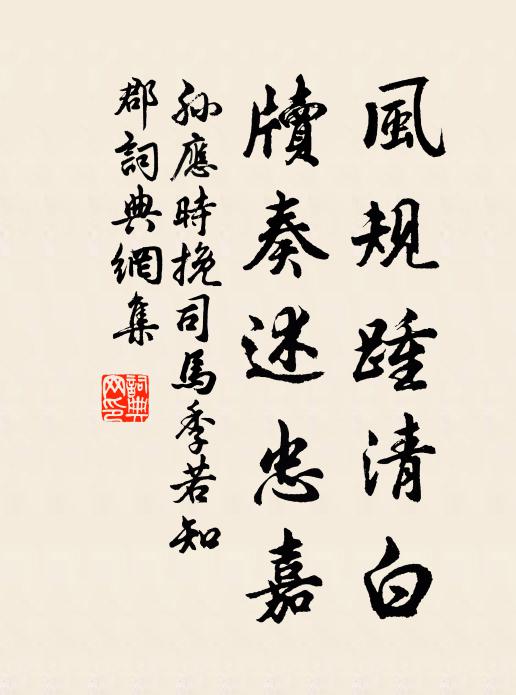 風規踵清白
牘奏述忠嘉
孫應時挽司馬季若知
郡詞典網集
詞典
网印